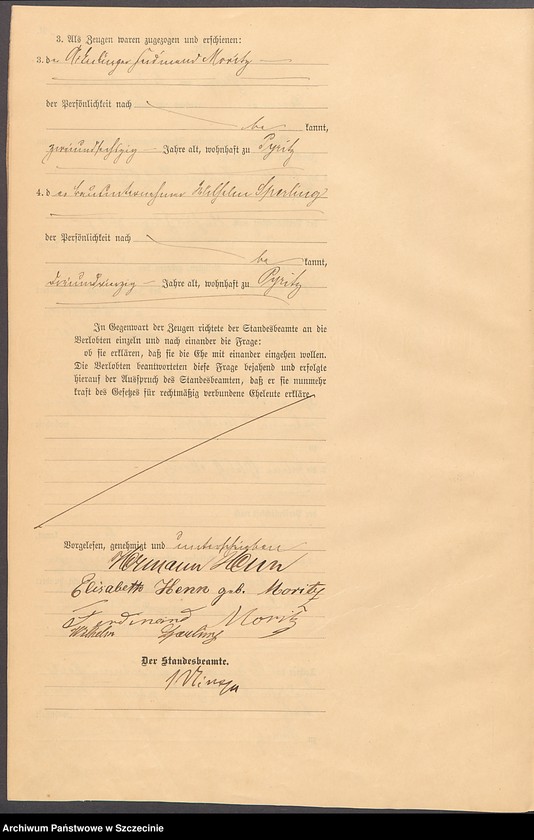 3. Als Zeugen waren zugezogen und erschienen:
3. der Ferdinand Moritz
der Persönlichkeit nach
be kannt,
zweiundsechzig Jahre alt, wohnhaft zu Pyritz
4. der Bauunternehmer Wilhelm Sperling
der Persönlichkeit nach
be kannt,
dreiundvierzig Jahre alt, wohnhaft zu Pyritz
In Gegenwart der Zeugen richtete der Standesbeamte an die
Verlobten einzeln und nach einander die Frage:
ob sie erklären, daß sie die Ehe mit einander eingehen wollen.
Die Verlobten beantworteten diese Frage bejahend und erfolgte
hierauf der Ausspruch des Standesbeamten, daß er sie nunmehr
kraft des Gesetzes für rechtmäßig verbundene Eheleute erkläre.
Vorgelesen, genehmigt und unterschrieben
Hermann Henn
Elisabeth Henn geb. Moritz
Ferdinand Moritz
Wilhelm Sperling
Der Standesbeamte.
Archiwum Państwowe w Szczecinie